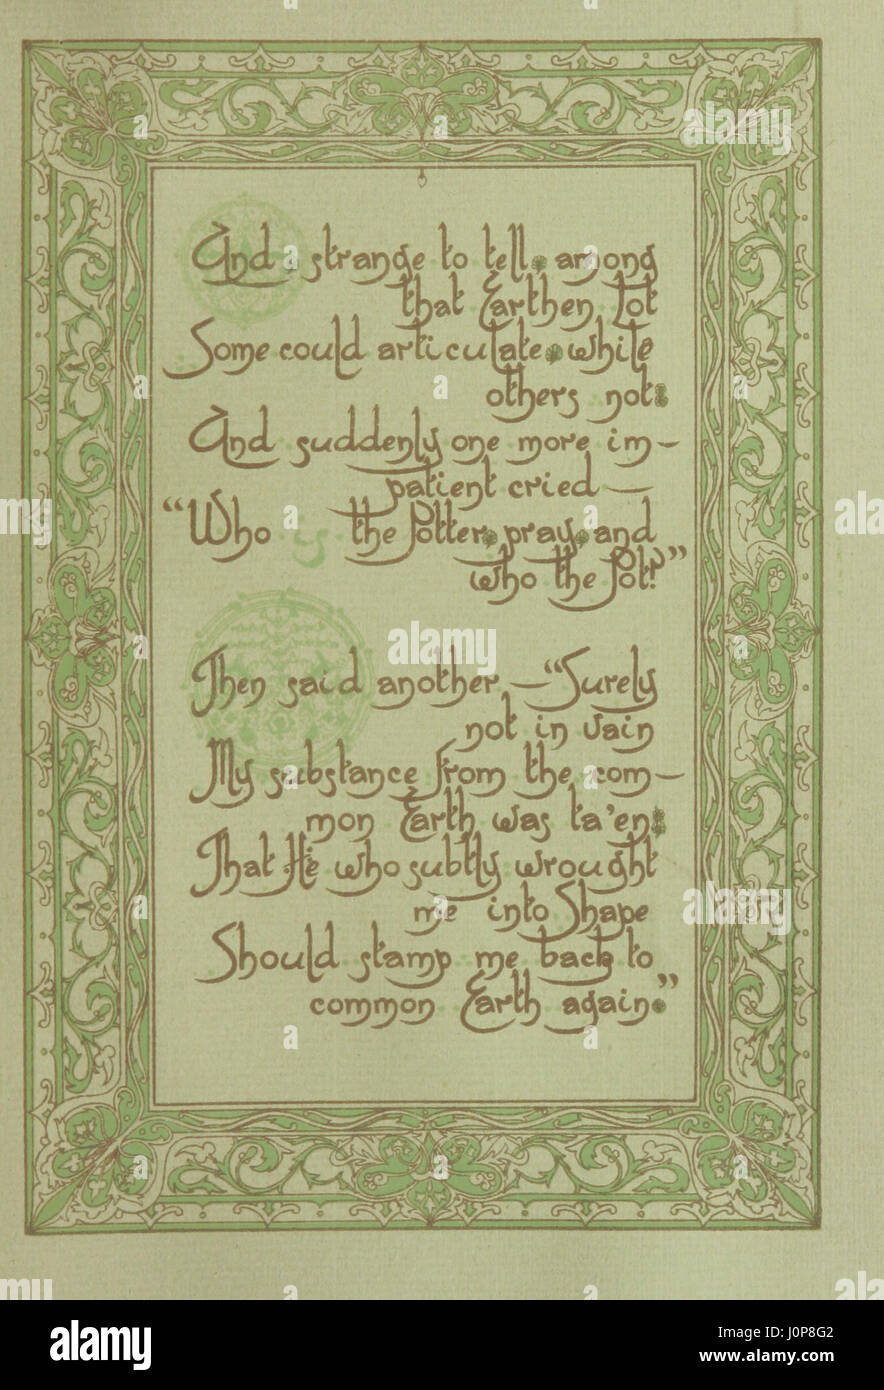 And strange to tell, among
that Earthen Lot
Some could articulate, while
others not:
And suddenly one more im-
patient cried—
“Who is the Potter, pray, and
who the Pot?”
Then said another—“Surely
not in vain
My substance from the com-
mon Earth was ta'en;
That He who subtly wrought
me into Shape
Should stamp me back to
common Earth again.”
a alamy
alamy
a
alamy stock photo
J0P8G2
www.alamy.com